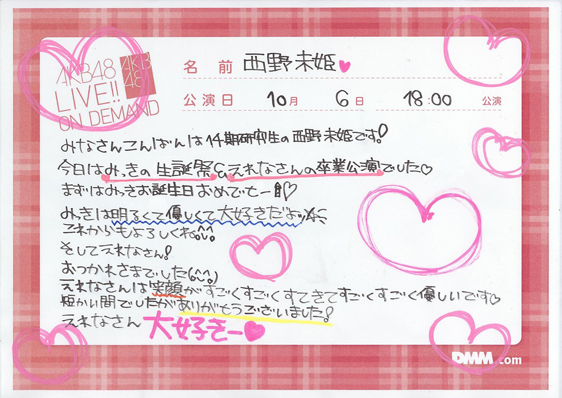 AKB48
LIVE!!
ON DEMAND
AKB
48
名 前 西野未姫
公演日 10月 6日 18:00 公演
みなさんこんばんは14期研究生の西野未姫です!
今日はみっきの生誕祭&えれなさんの卒業公演でした♡
まずはみっきお誕生日おめでとー!♡
みっきは明るくて優しくて大好きだよ
これからもよろしくね
そしてえれなさん!
おつかれさまでした(^^)
えれなさんは笑顔がすごくすごくすてきですごくすごく優しいです♡
短かい間でしたがありがとうございました!
えれなさん 大好きー♥
DMM.com